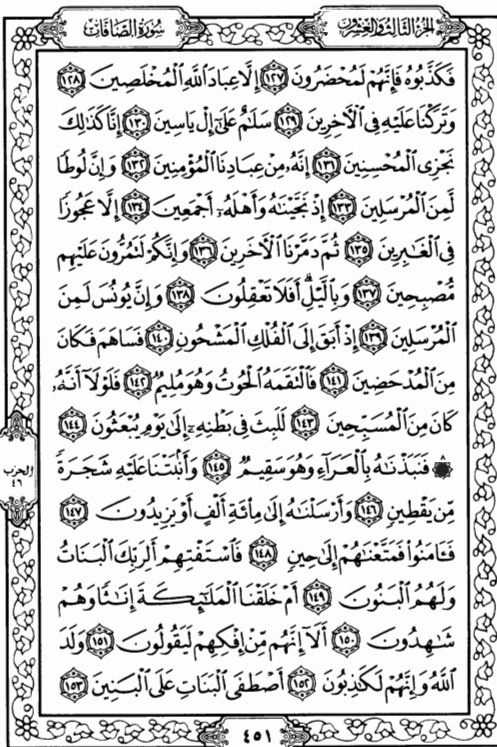 الجزء الثالث والعشرون
سورة الصافات
فَكَذَّبُوهُ فَإِنَّهُمْ لَمُحْضَرُونَ ١٢٧ إِلَّا عِبَادَ ٱللَّهِ ٱلْمُخْلَصِينَ ١٢٨
وَتَرَكْنَا عَلَيْهِ فِى ٱلْـَٔاخِرِينَ ١٢٩ سَلَٰمٌ عَلَىٰٓ إِلْ يَاسِينَ ١٣٠ إِنَّا كَذَٰلِكَ
نَجْزِى ٱلْمُحْسِنِينَ ١٣١ إِنَّهُۥ مِنْ عِبَادِنَا ٱلْمُؤْمِنِينَ ١٣٢ وَإِنَّ لُوطًا
لَّمِنَ ٱلْمُرْسَلِينَ ١٣٣ إِذْ نَجَّيْنَٰهُ وَأَهْلَهُۥٓ أَجْمَعِينَ ١٣٤ إِلَّا عَجُوزًا
فِى ٱلْغَٰبِرِينَ ١٣٥ ثُمَّ دَمَّرْنَا ٱلْـَٔاخَرِينَ ١٣٦ وَإِنَّكُمْ لَتَمُرُّونَ عَلَيْهِم
مُّصْبِحِينَ ١٣٧ وَبِٱلَّيْلِ ۗ أَفَلَا تَعْقِلُونَ ١٣٨ وَإِنَّ يُونُسَ لَمِنَ
ٱلْمُرْسَلِينَ ١٣٩ إِذْ أَبَقَ إِلَى ٱلْفُلْكِ ٱلْمَشْحُونِ ١٤٠ فَسَاهَمَ فَكَانَ
مِنَ ٱلْمُدْحَضِينَ ١٤١ فَٱلْتَقَمَهُ ٱلْحُوتُ وَهُوَ مُلِيمٌ ١٤٢ فَلَوْلَآ أَنَّهُۥ
كَانَ مِنَ ٱلْمُسَبِّحِينَ ١٤٣ لَلَبِثَ فِى بَطْنِهِۦٓ إِلَىٰ يَوْمِ يُبْعَثُونَ ١٤٤
۞ فَنَبَذْنَٰهُ بِٱلْعَرَآءِ وَهُوَ سَقِيمٌ ١٤٥ وَأَنۢبَتْنَا عَلَيْهِ شَجَرَةً
مِّن يَقْطِينٍ ١٤٦ وَأَرْسَلْنَٰهُ إِلَىٰ مِا۟ئَةِ أَلْفٍ أَوْ يَزِيدُونَ ١٤٧
فَـَٔامَنُوا۟ فَمَتَّعْنَٰهُمْ إِلَىٰ حِينٍ ١٤٨ فَٱسْتَفْتِهِمْ أَلِرَبِّكَ ٱلْبَنَاتُ
وَلَهُمُ ٱلْبَنُونَ ١٤٩ أَمْ خَلَقْنَا ٱلْمَلَٰٓئِكَةَ إِنَٰثًا وَهُمْ
شَٰهِدُونَ ١٥٠ أَلَآ إِنَّهُم مِّنْ إِفْكِهِمْ لَيَقُولُونَ ١٥١ وَلَدَ
ٱللَّهُ وَإِنَّهُمْ لَكَٰذِبُونَ ١٥٢ أَصْطَفَى ٱلْبَنَاتِ عَلَى ٱلْبَنِينَ ١٥٣
الحزب
٤٦
٤٥١